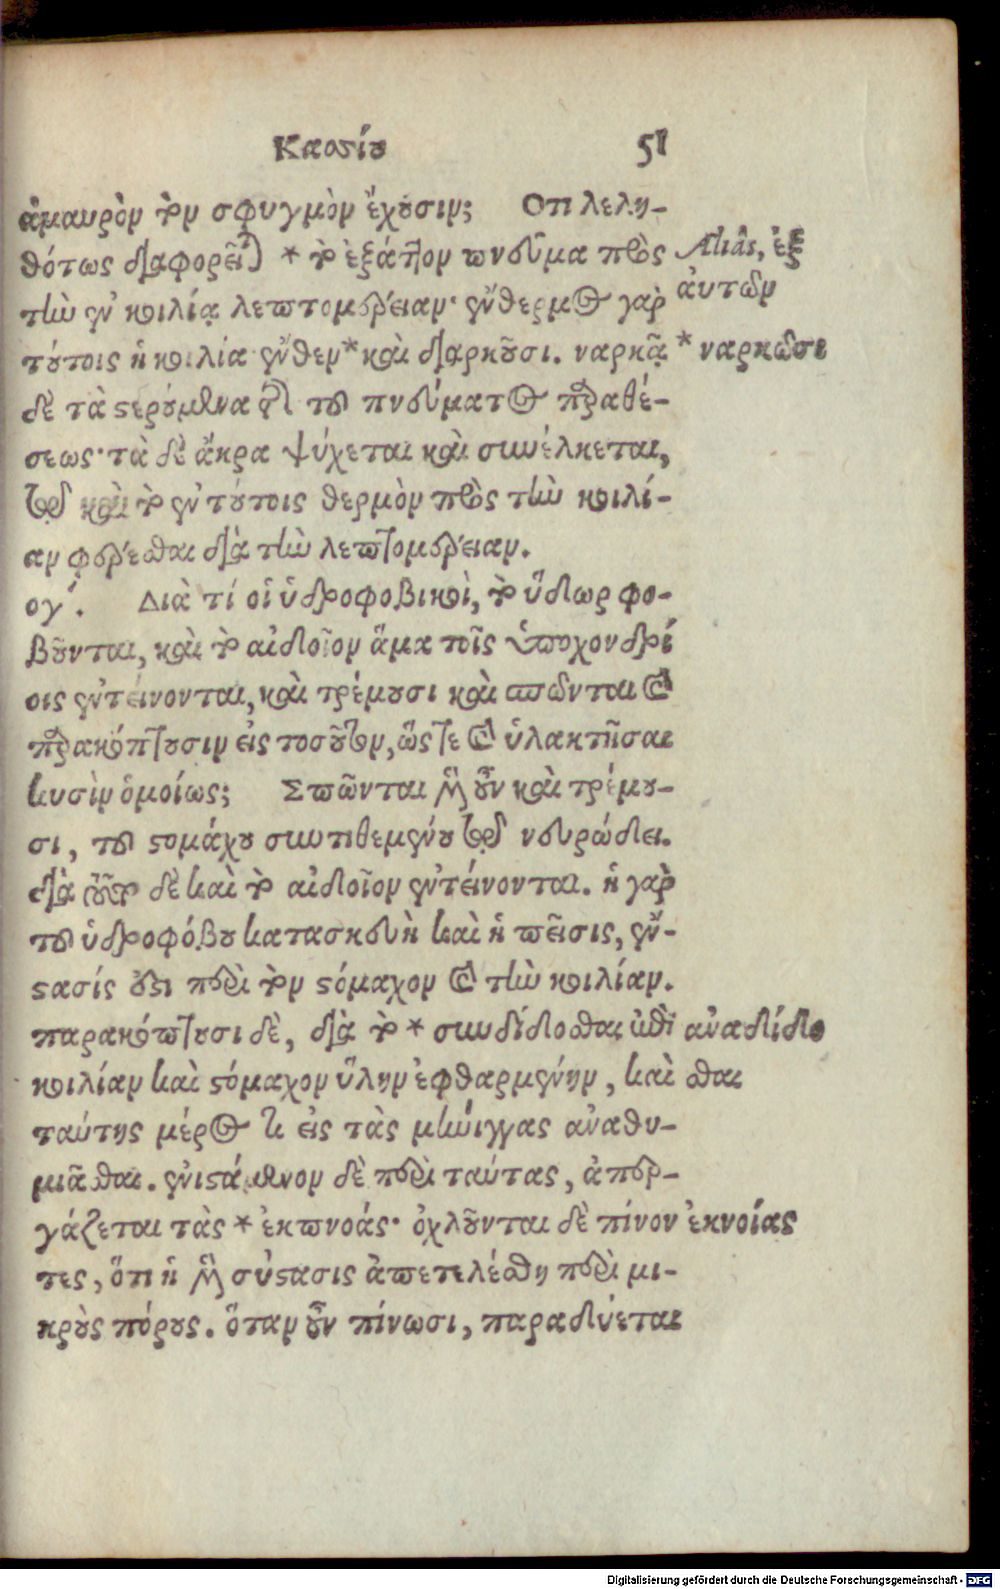 Κασσίου 51
ἀμαυρὸν τὸν σφυγμὸν ἔχουσιν; Ὅτι λελη-
θότως διαφορεῖται * τὸ ἐξάτιον πνεῦμα πρὸς Aliâs, ἐξ
τὴν ἐν κοιλίᾳ λεπτομέρειαν· ἔνθερμος γὰρ ἀυτῶν
τούτοις ἡ κοιλία ἔνθεν * καὶ διαρκοῦσι. ναρκᾷ * ναρκῶσι
δὲ τὰ στερούμενα διὰ τοῦ πνεύματος παραθέ-
σεως· τὰ δὲ ἄκρα ψύχεται καὶ συνέλκεται,
τῷ καὶ τὸ ἐν τούτοις θερμὸν πρὸς τὴν κοιλί-
αν φέρεσθαι διὰ τὴν λεπτομέρειαν.
ογ΄. Διὰ τί οἱ ὑδροφοβικοὶ, τὸ ὕδωρ φο-
βοῦνται, καὶ τὸ αἰδοῖον ἅμα τοῖς ὑποχονδρί
οις ἐντείνονται, καὶ τρέμουσι καὶ σπῶνται καὶ
παρακόπτουσιν εἰς τοσοῦτον, ὥστε καὶ ὑλακτῆσαι
κυσὶν ὁμοίως; Σπῶνται μὲν οὖν καὶ τρέμου-
σι, τοῦ στομάχου συντιθεμένου τῷ νευρώδει.
διὰ τοῦτο δὲ καὶ τὸ αἰδοῖον ἐντείνονται. ἡ γὰρ
τοῦ ὑδροφόβου κατασκευὴ καὶ ἡ πεῖσις, ἔν-
στασίς ἐστι περὶ τὸν στόμαχον καὶ τὴν κοιλίαν.
παρακόπτουσι δὲ, διὰ τὸ * συνδίδοσθαι ἐπὶ ἀναδίδο
κοιλίαν καὶ στόμαχον ὕλην ἐφθαρμένην, καὶ σθαι
ταύτης μέρος τι εἰς τὰς μήνιγγας ἀναθυ-
μιᾶσθαι. ἐνιστάμενον δὲ περὶ ταύτας, ἀπερ-
γάζεται τὰς * ἐκπνοάς· ὀχλοῦνται δὲ πίνον ἐκνοίας
τες, ὅτι ἡ μὲν σύστασις ἀπετελέσθη περὶ μι-
κροὺς πόρους. ὅταν οὖν πίνωσι, παραδύεται
Digitalisierung gefördert durch die Deutsche Forschungsgemeinschaft - DFG